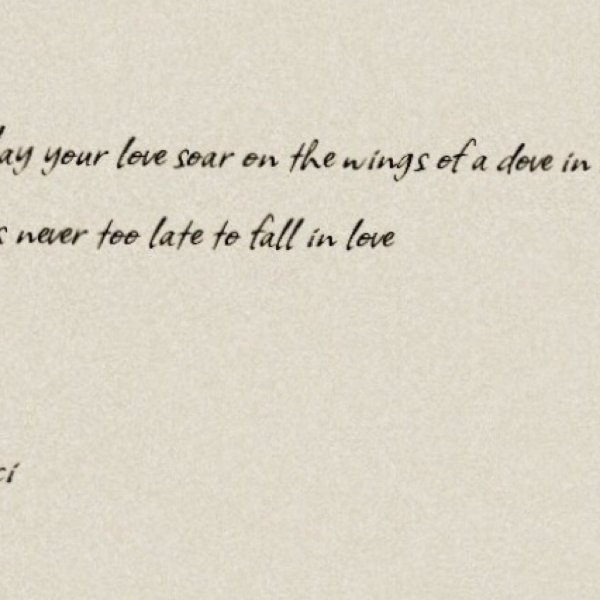 ay your love soar on the wings of a dove in
s never too late to fall in love
ci